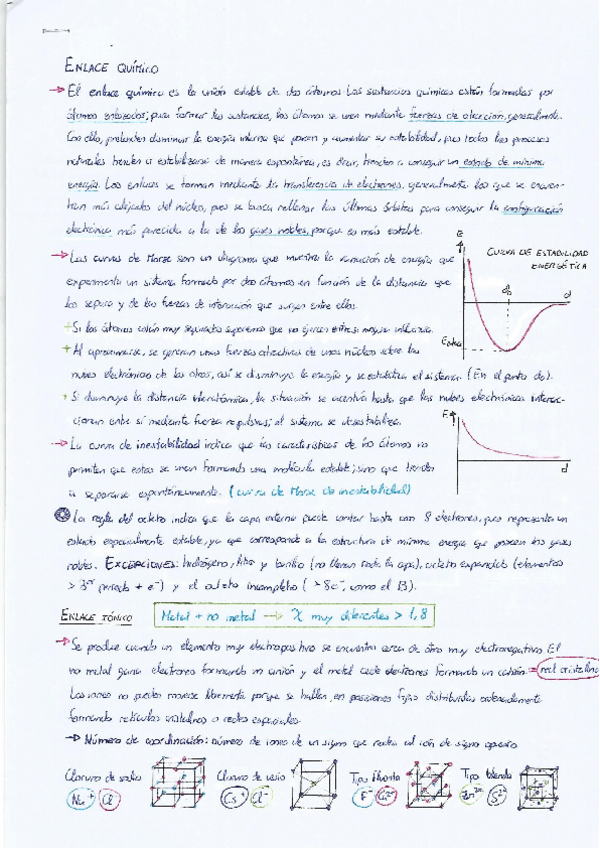 ENLACE QUÍMICO
→ El enlace químico es la unión estable de dos átomos. Las sustancias químicas están formadas por
átomos enlazados; para formar las sustancias, los átomos se unen mediante fuerzas de atracción, generalmente.
Con ello, pretenden disminuir la energía interna que poseen y aumentar su estabilidad, pues todos los procesos
naturales tienden a estabilizarse de manera espontánea, es decir, tienden a conseguir un estado de mínima
energía. Los enlaces se forman mediante la transferencia de electrones, generalmente los que se encuen-
tran más alejados del núcleo, pues se busca rellenar las últimas órbitas para conseguir la configuración
electrónica más parecida a la de los gases nobles, porque es más estable.
→ Las curvas de Morse son un diagrama que muestra la variación de energía que
experimenta un sistema formado por dos átomos en función de la distancia que
los separa y de las fuerzas de interacción que surgen entre ellos.
E
CURVA DE ESTABILIDAD
ENERGÉTICA
do
d
+ Si los átomos están muy separados suponemos que no ejercen entre sí ninguna influencia.
+ Al aproximarse, se generan unas fuerzas atractivas de unos núcleos sobre las
nubes electrónicas de los otros, así se disminuye la energía y se estabiliza el sistema. (En el punto do).
+ Si disminuye la distancia interatómica, la situación se acentúa hasta que las nubes electrónicas interac-
cionan entre sí mediante fuerza repulsiva; el sistema se desestabiliza.
→ La curva de inestabilidad indica que las características de los átomos no
permiten que estos se unan formando una molécula estable; sino que tienden
a separarse espontáneamente. (curva de Morse de inestabilidad)
E
d
La regla del octeto indica que la capa externa puede contar hasta con 8 electrones, pues representa un
estado especialmente estable, ya que corresponde a la estructura de mínima energía que poseen los gases
nobles. EXCEPCIONES: hidrógeno, litio y berilio (no llenan toda la capa), octeto expandido (elementos
> 3er periodo + e-) y el octeto incompleto ( 8e-, como el B).
ENLACE IÓNICO
Metal + no metal → X muy diferentes > 1,8
→ Se produce cuando un elemento muy electropositivo se encuentra cerca de otro muy electronegativo. El
no metal gana electrones formando un anión y el metal cede electrones formando un catión. = red cristalina
Los iones no pueden moverse libremente porque se hallan en posiciones fijas distribuidas ordenadamente
formando retículos cristalinos o redes espaciales.
→ Número de coordinación: número de iones de un signo que rodea al ión de signo opuesto
Cloruro de sodio
Na+ Cl-
Cloruro de cesio
Cs+ Cl-
Tipo fluorita
F- Ca2+
Tipo blenda
Zn2+ S2-